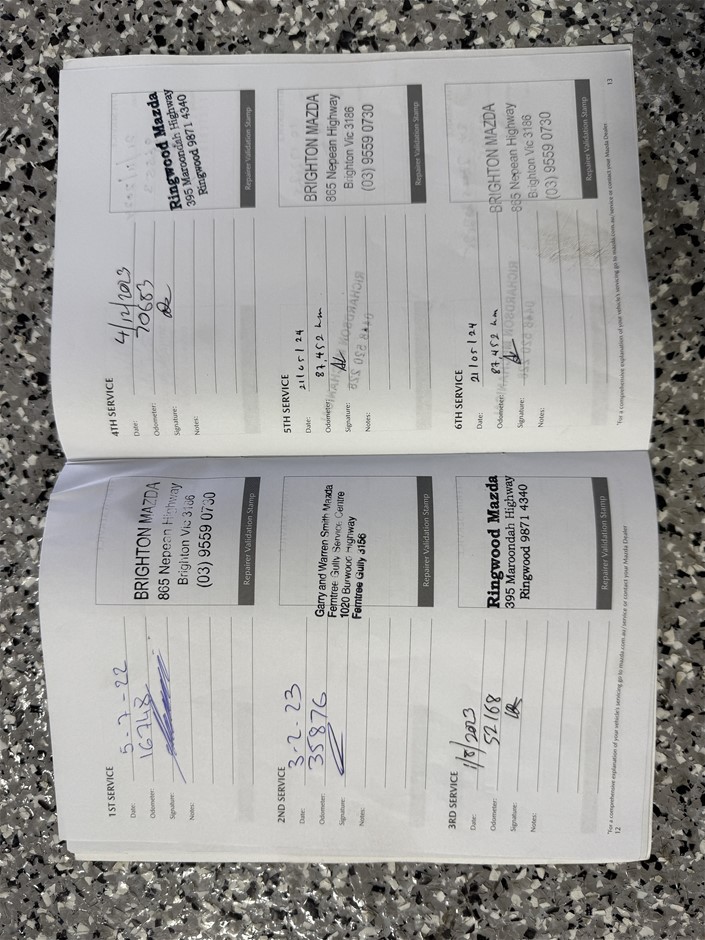 1ST SERVICE
Date: 5-7-22
Odometer: 16748
Signature:
Notes:
BRIGHTON MAZDA
865 Nepean Highway
Brighton Vic 3186
(03) 9559 0730
Repairer Validation Stamp
2ND SERVICE
Date: 3-2-23
Odometer: 35876
Signature:
Notes:
Garry and Warren Smith Mazda
Ferntree Gully Service Centre
1020 Burwood Highway
Ferntree Gully 3156
Repairer Validation Stamp
3RD SERVICE
Date: 1/8/2023
Odometer: 52168
Signature:
Notes:
Ringwood Mazda
395 Maroondah Highway
Ringwood 9871 4340
Repairer Validation Stamp
*For a comprehensive explanation of your vehicle's servicing go to mazda.com.au/service or contact your Mazda Dealer
12
4TH SERVICE
Date: 4/12/2023
Odometer: 70683
Signature:
Notes:
Ringwood Mazda
395 Maroondah Highway
Ringwood 9871 4340
Repairer Validation Stamp
5TH SERVICE
Date: 21/05/24
Odometer: 87,452 km
Signature:
Notes:
BRIGHTON MAZDA
865 Nepean Highway
Brighton Vic 3186
(03) 9559 0730
Repairer Validation Stamp
6TH SERVICE
Date: 21/05/24
Odometer: 87,452 km
Signature:
Notes:
BRIGHTON MAZDA
865 Nepean Highway
Brighton Vic 3186
(03) 9559 0730
Repairer Validation Stamp
*For a comprehensive explanation of your vehicle's servicing go to mazda.com.au/service or contact your Mazda Dealer
13